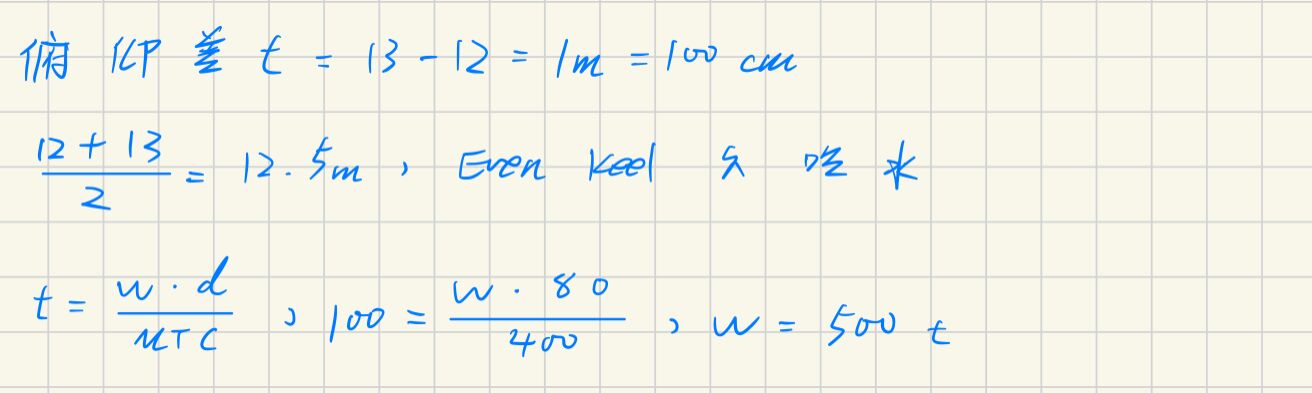 俯仰差 t = 13 - 12 = 1m = 100 cm
(12 + 13)/2 = 12.5m , Even keel 之吃水
t = (w · d)/MTC , 100 = (w · 80)/400 , w = 500 t